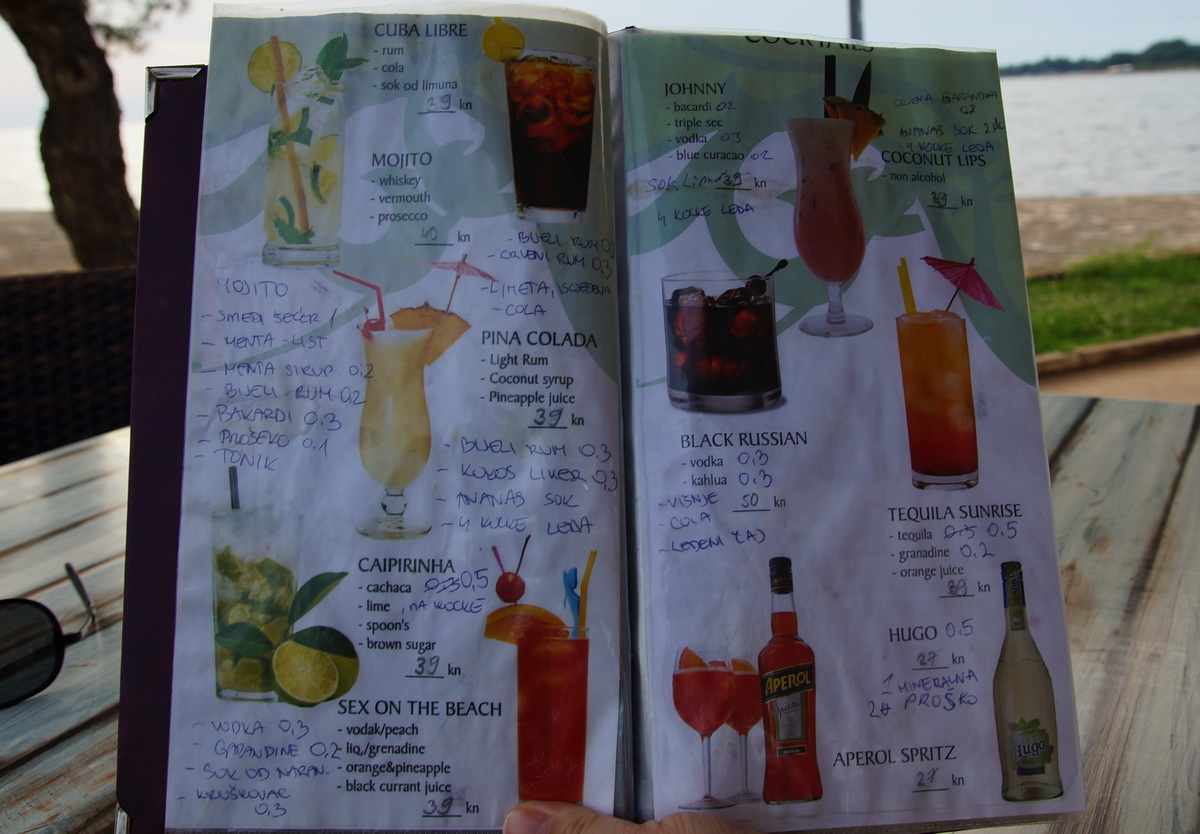 CUBA LIBRE
- rum
- cola
- sok od limuna
39 kn
MOJITO
- whiskey
- vermouth
- prosecco
40 kn
- BIJELI RUM
- CRVENI RUM 0,3
- LIMETA,
- COLA
MOJITO
- SMEĐI ŠEĆER
- MENTA - LIST
- MENTA SIRUP 0,2
- BIJELI RUM 0,2
- BAKARDI 0.3
- PROŠEKO 0.1
- TONIK
PINA COLADA
- Light Rum
- Coconut syrup
- Pineapple juice
39 kn
- BIJELI RUM 0,3
- KOKOS LIKER 0,3
- ANANAS SOK
- 4 KOCKE LEDA
CAIPIRINHA
- cachaca 0,5
- lime , NA KOCKE
- spoon's
- brown sugar
39 kn
SEX ON THE BEACH
- vodak/peach
- liq./grenadine
- orange&pineapple
- black currant juice
39 kn
- VODKA 0,3
- GARANDINE 0,2
- SOK OD NARAN.
- KRUŠKOVAC
0,3
COCKTAILS
JOHNNY
- bacardi 02
- triple sec
- vodka 03
- blue curacao 02
SOK 39 kn
4 KOCKE LEDA
02
ANANAS SOK 2dc
4 KOCKE LEDA
COCONUT LIPS
- non alcohol
39 kn
BLACK RUSSIAN
- vodka 0,3
- kahlua 0,3
- VIŠNJE 50 kn
- COLA
TEQUILA SUNRISE
- tequila 0,5
- granadine 0,2
- orange juice
39 kn
HUGO 0,5
27 kn
1 MINERALNA
PROŠKO
APEROL SPRITZ
27 kn
APEROL
Hugo